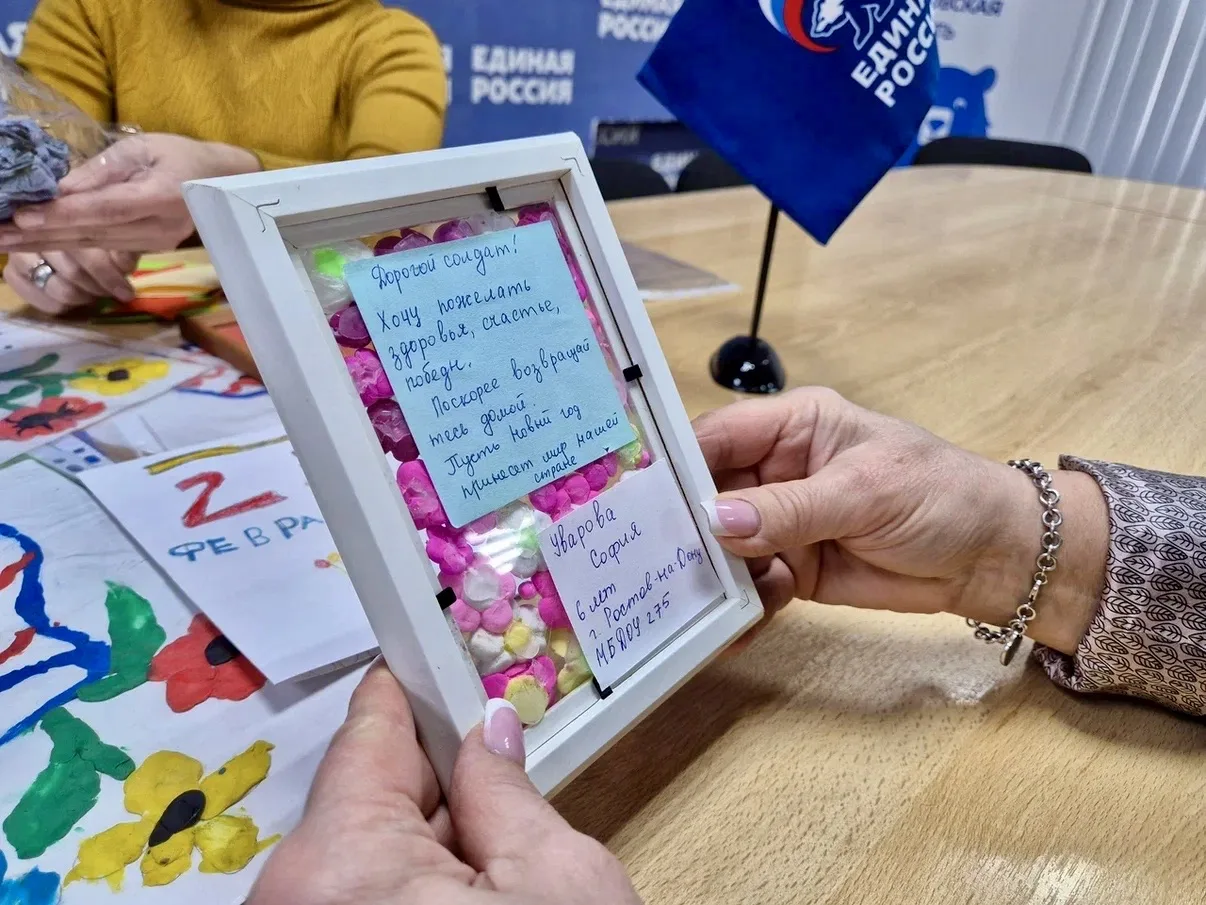 ЕДИНАЯ
РОССИЯ
РОССИЯ
ЕДИНАЯ
РОССИЯ
Дорогой солдат!
Хочу пожелать
здоровья, счастье,
победы.
Поскорее возвращай
тесь домой.
Пусть Новый год
принесет мир нашей
стране
Уварова
София
6 лет
г. Ростов-на-Дону
МБДОУ 275
2
ФЕВРА